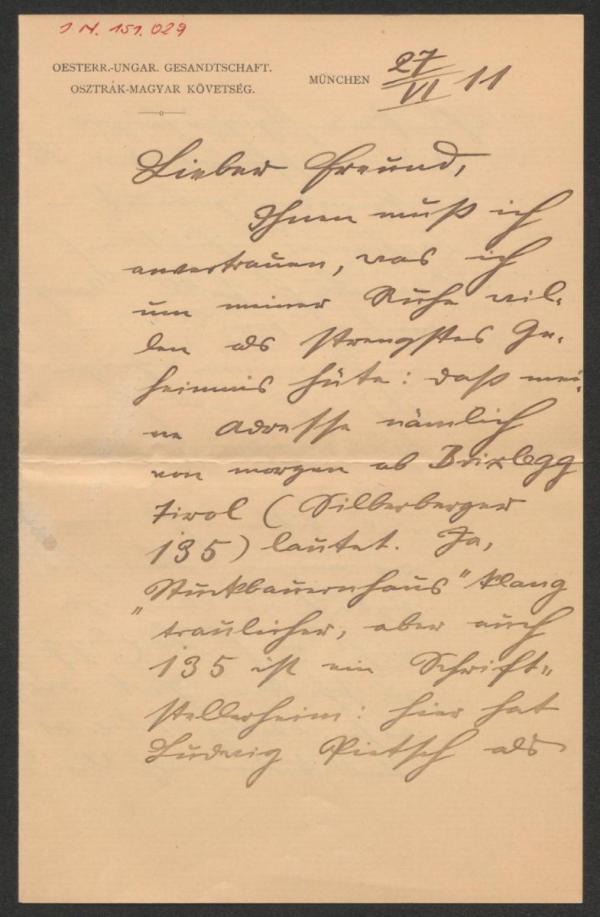 I.N. 151.029
OESTERR.-UNGAR. GESANDTSCHAFT.
OSZTRÁK-MAGYAR KÖVETSÉG.
MÜNCHEN 27/VI 11
Lieber Freund,
Ihnen muß ich
anvertrauen, was ich
um meiner Ruhe wil-
len als strengstes Ge-
heimnis hüte: daß mei-
ne Adresse nämlich
von morgen ab Brixlegg
Tirol (Silberberger
135) lautet. Ja,
"Stuckbauernhaus" klang
traulicher, aber auch
135 ist ein Schrift-
stellerheim: hier hat
Ludwig Pietsch als